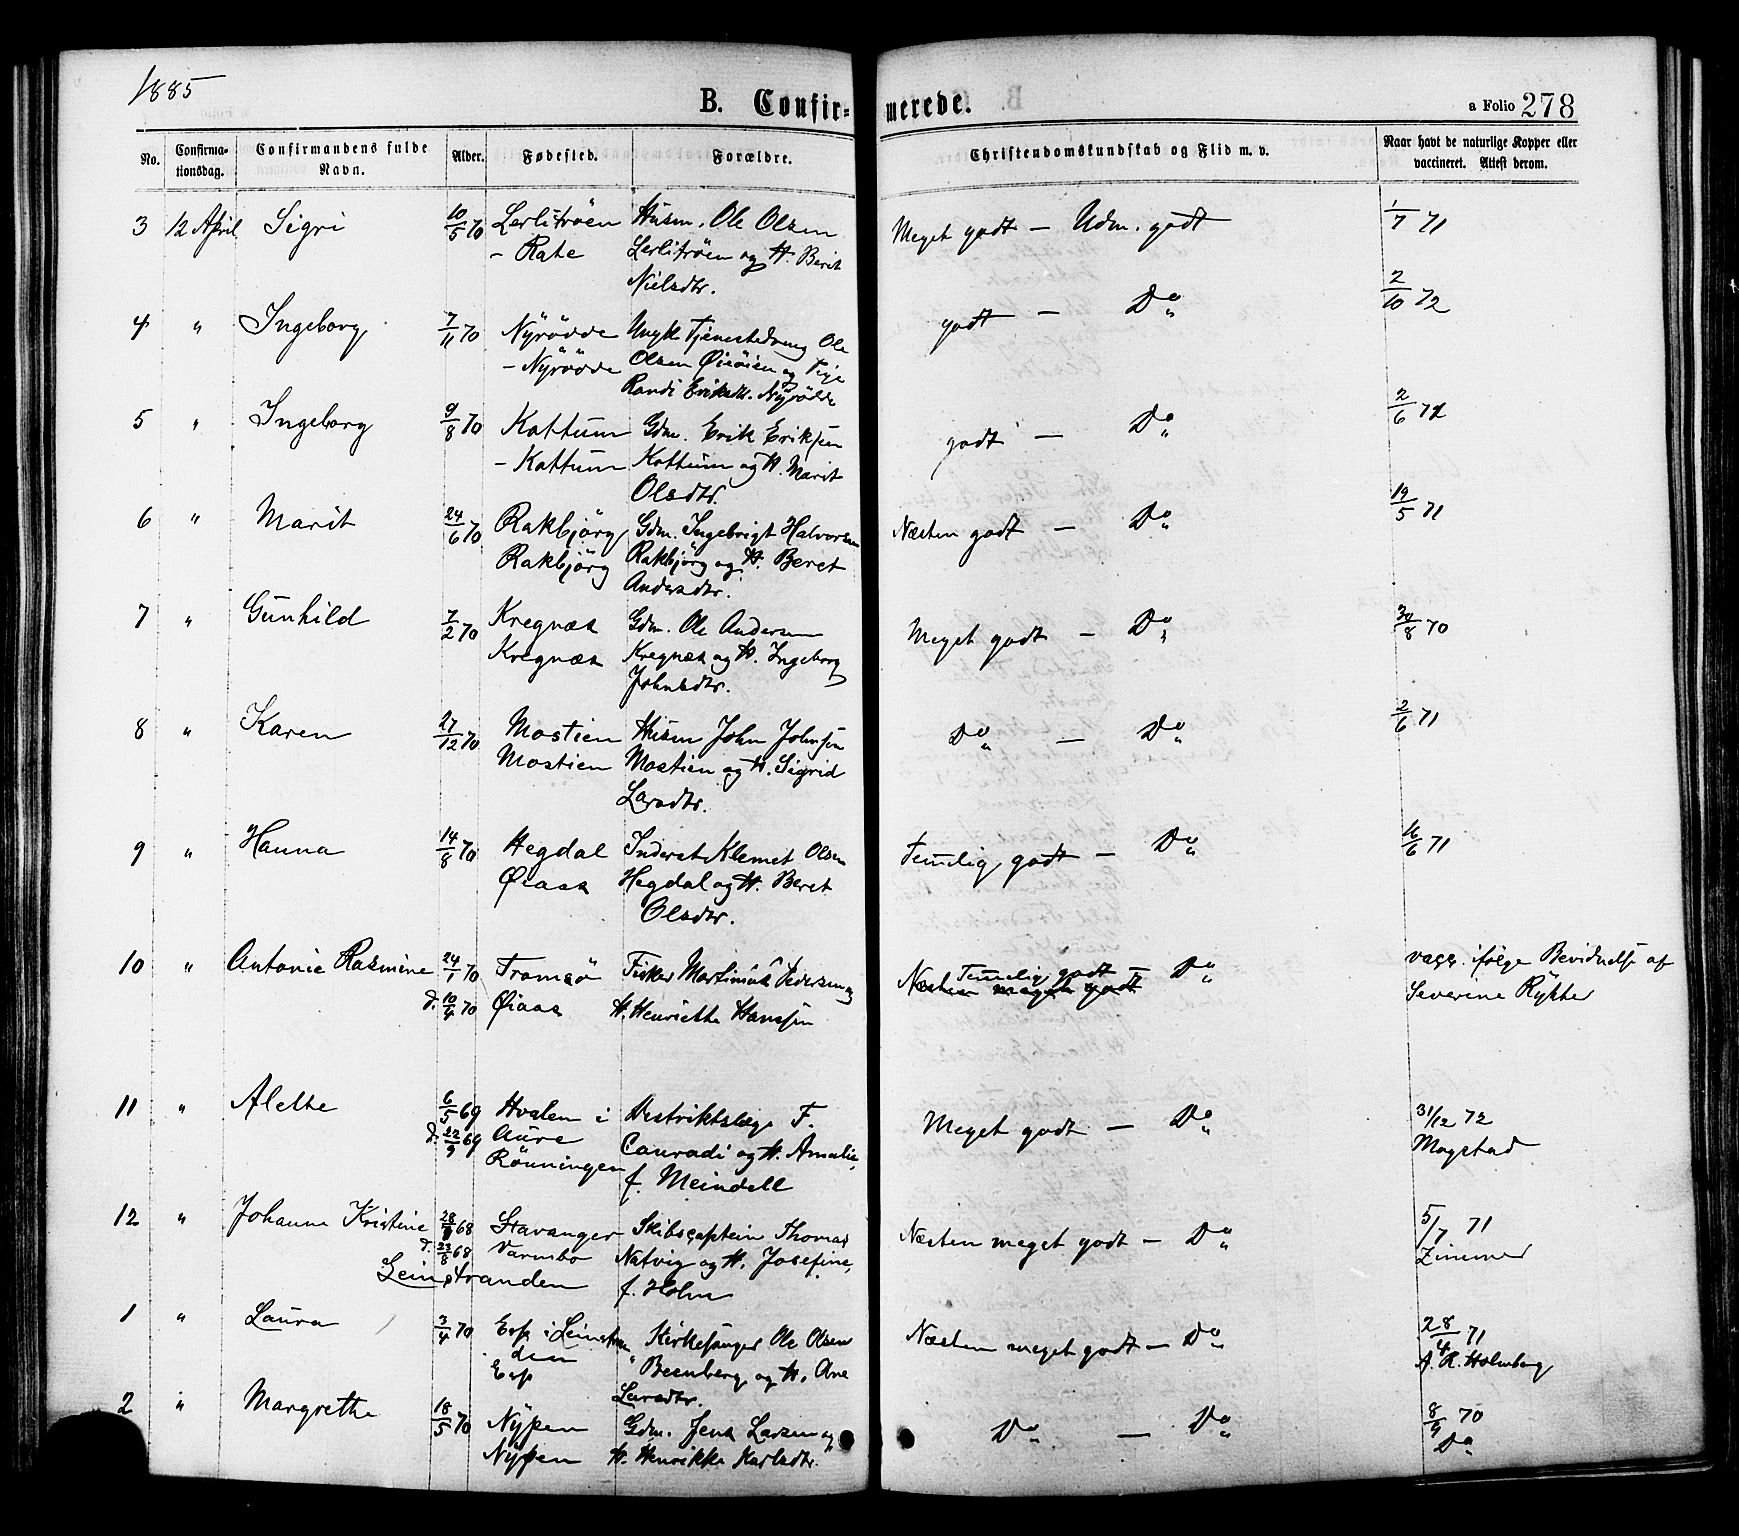 1885
B. Confir-merede.
a Folio 278
No. Confirma-tionsdag. Confirmandens fulde Navn. Alder. Fødested. Forældre. Christendomskundskab og Flid m. v. Naar havt de naturlige Kopper eller vaccineret. Attest derom.
3 12 April Sigri 10/5 70 Lerlitrøen Husm. Ole Olsen Meget godt — Udm. godt 1/7 71
- Rate Lerlitrøen og H. Berit
Nielsdtr.
4 " Ingeborg 7/11 70 Nyrödde Ungk. Tjenestedreng Ole godt — Do 2/10 72
- Nyrödde Olsen Øieöien og Pige
Randi Eriksdt. Nyrödde
5 " Ingeborg 9/8 70 Kattum Gdm. Erik Eriksen godt — Do 2/6 71
- Kattum Kattum og H. Marit
Olsdtr.
6 " Marit 24/6 70 Rakbjörg Gdm. Ingebrigt Halvorsen Næsten godt — Do 19/5 71
Rakbjörg Rakbjörg og H. Beret
Andersdtr.
7 " Gunhild 7/2 70 Kregnæs Gdm. Ole Andersen Meget godt — Do 30/8 70
Kregnæs Kregnæs og H. Ingeborg
Johnsdtr.
8 " Karen 27/12 70 Mostien Husm John Johnsen Do — Do 2/6 71
Mostien Mostien og H. Sigrid
Larsdtr.
9 " Hanna 14/8 70 Hegdal Inderst Klemet Olsen Temlig godt — Do 16/6 71
Øiaas Hegdal og H. Beret
Olsdtr.
10 " Antonie Rasmine 24/1 70 Tromsø Fisker Martinus Pedersen og Temlig godt — Do vacc. ifølge Bevidnelse af
d. 10/4 70 Øiaas H. Henriette Hanssen Næsten meget godt Severine Rykke
11 " Alette 6/5 69 Hvalen i Distriktslæge F. Meget godt — Do 31/12 72
d. 22/9 69 Aure Conradi og H. Amalie, Magstad
Rönningen f. Meindell
12 " Johanne Kristine 28/ 68 Stavanger Skibscaptein Thomas Næsten meget godt — Do 5/7 71
d. 23/8 68 Varmbo Natvig og H. Josefine, Zimmer
Leinstranden f. Holm
1 " Laura 3/4 70 Esp i Leinstran Kirkesanger Ole Olsen Næsten meget godt — Do 28/4 71
den Beenberg og H. Ane A. R. Holmberg
Esp Larsdtr.
2 " Margrethe 18/5 70 Nypen Gdm. Jens Larsen og Do — Do 8/9 70
Nypen H. Henrikke Karlsdtr. Do